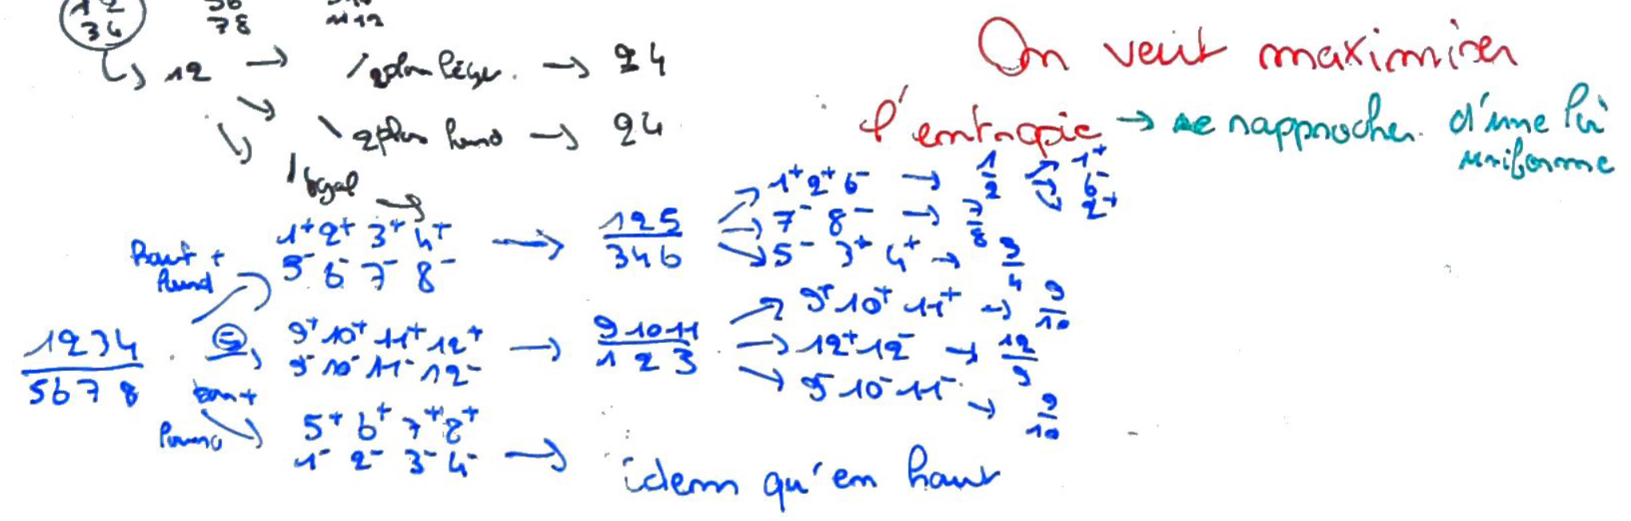 12 56
34 78 1112
↳ 12 → / 2 plus léger. → 24
↘ \ 2 plus lourd → 24
↳ / égal
On veut maximiser
l'entropie → se rapprocher d'une loi
uniforme
haut +
lourd
1+ 2+ 3+ 4+
5- 6- 7- 8-
→ 125/346
1+ 2+ 6- → 1/2 → 1+ 6- 2+
7- 8- → 7/8
5- 3+ 4+ → 3/4
1234/5678
=
9+ 10+ 11+ 12+
9- 10- 11- 12-
→ 9 10 11/1 2 3
9+ 10+ 11+ → 9/10
12+ 12- → 12/9
9- 10- 11- → 9/10
lourd
5+ 6+ 7+ 8+
1- 2- 3- 4- →
idem qu'en haut